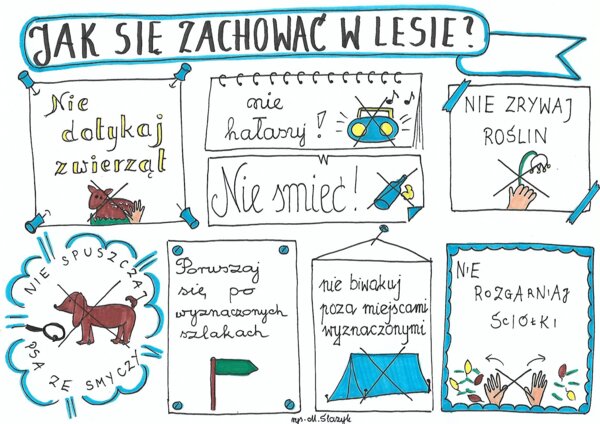 JAK SIĘ ZACHOWAĆ W LESIE?
Nie
dotykaj
zwierząt
nie
hałasuj!
Nie śmieć!
NIE ZRYWAJ
ROŚLIN
NIE SPUSZCZAJ
PSA ZE SMYCZY
Poruszaj
się po
wyznaczonych
szlakach
nie biwakuj
poza miejscami
wyznaczonymi
NIE
ROZGARNIAJ
ŚCIÓŁKI
rys. M. Ślazyk